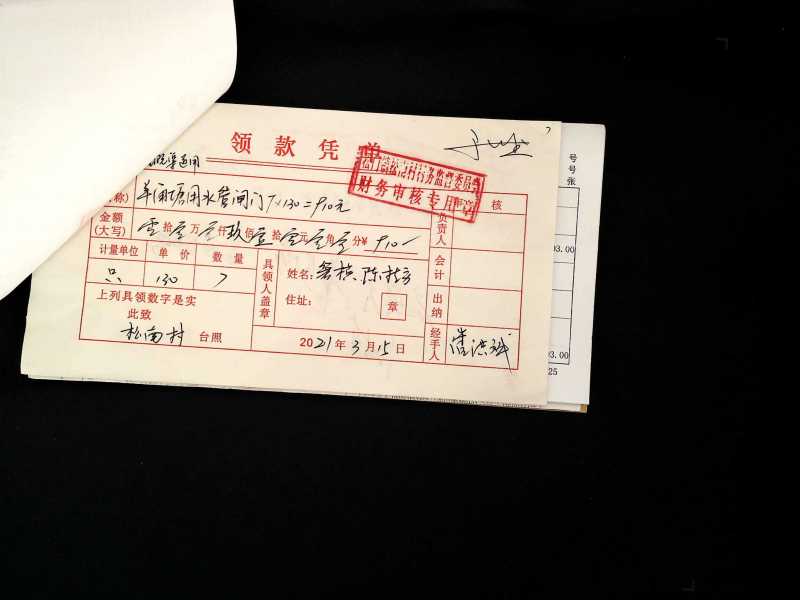 领款凭单
松门镇松南村村务监督委员会
财务审核专用章
称)
水管闸门7×130=910元
审核
金额
(大写)
零拾零万零仟玖佰壹拾零元零角零分¥ 910-
负责人
计量单位 单价 数量
具领人盖章
姓名:
会计
只 130 7
住址:
章
上列具领数字是实
出纳
此致
松南村 台照
2021年3月15日
经手人
号
号
张
03.00
03.00
25